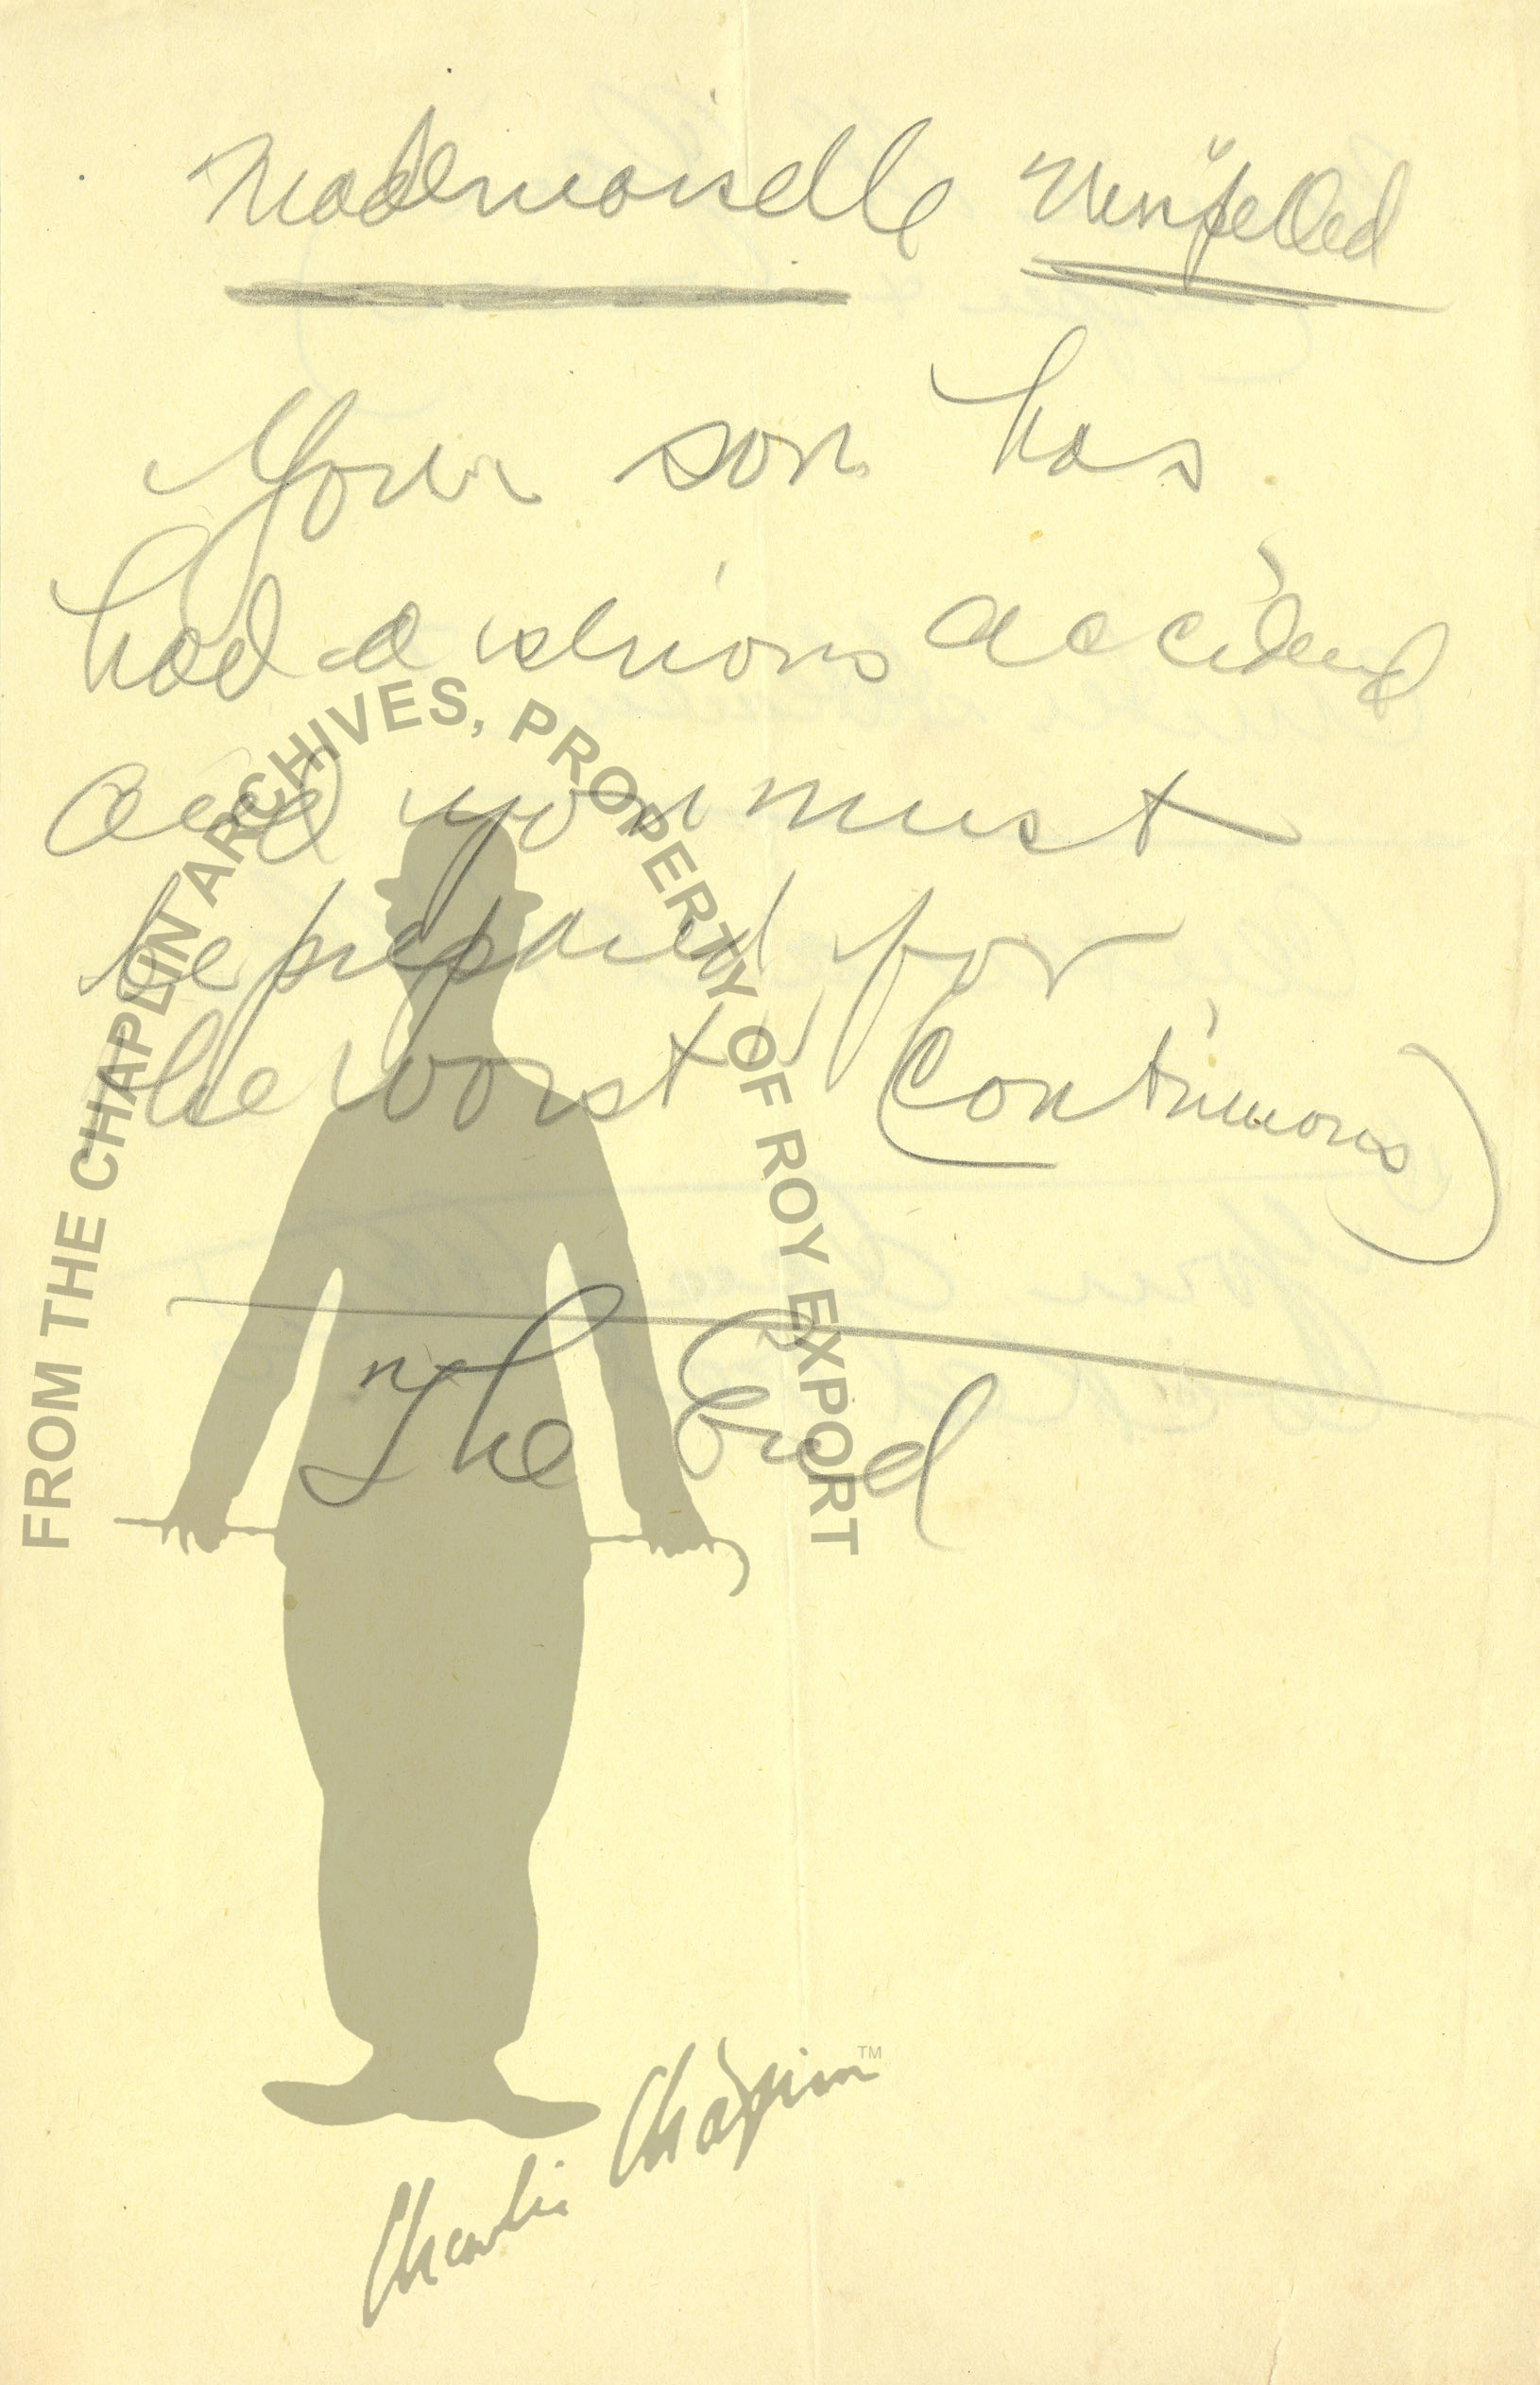 Mademoiselle Mispelled
Your son has
had a serious accident
and you must
be prepared for
the worst (Continuous)
The End
FROM THE CHAPLIN ARCHIVES, PROPERTY OF ROY EXPORT
Charlie Chaplin™